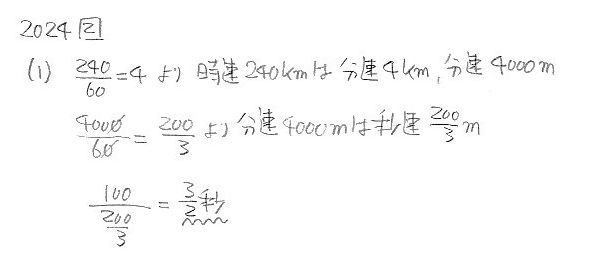 2024 2
(1) 240/60 = 4 より 時速240kmは 分速4km, 分速4000m
4000/60 = 200/3 より 分速4000mは秒速 200/3 m
100/(200/3) = 3/2 秒